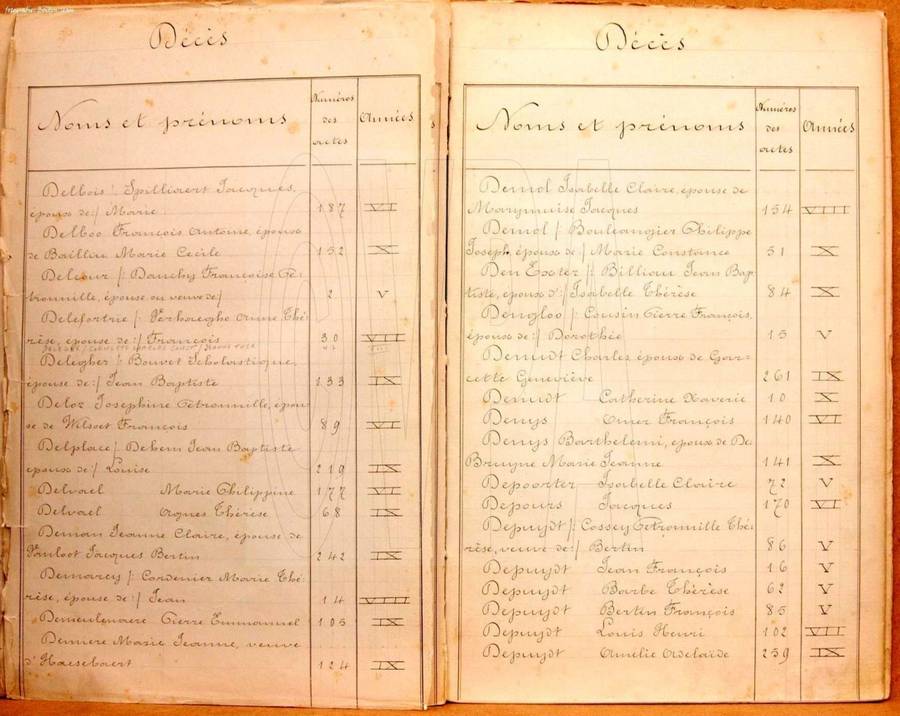 Décès
Noms et prénoms
Numéros
des
actes
Années
Delbois / Spilliaert Jacques,
époux de:/ Marie 187 VI
Delboo François Antoine, époux
de Bailliu Marie Cécile 152 X
Delcour /: Dauchy Françoise Pé-
tronille, épouse ou veuve de:/ 2 V
Delefortrie /: Verhaeghe Anne Thé-
rèse, épouse de:/ François 30 VIII
Delegher /: Bouvet Scholastique,
épouse de:/ Jean Baptiste 133 IX
Deloz Josephine Pétronille, épou-
se de Wilsoet François 89 VI
Delplace /: Dehem Jean Baptiste
époux de:/ Louise 219 IX
Delvael Marie Philippine 177 VI
Delvael Agnes Thérèse 68 IX
Deman Jeanne Claire, épouse de
Jacques Bertin 242 IX
Demarcy /: Cordenier Marie Thé-
rèse, épouse de:/ Jean 14 VIII
Demeulenaere Pierre Emmanuel 105 IX
Demiere Marie Jeanne, veuve
d'Haesebaert 124 IX
Décès
Noms et prénoms
Numéros
des
actes
Années
Demol Isabelle Claire, épouse de
Jacques 154 VIII
Demol /: Bouleangier Philippe
Joseph, époux de:/ Marie Constance 51 X
Den Exeter /: Billiau Jean Bap-
tiste, époux d':/ Isabelle Thérèse 84 X
Dengloo /: Cousin Pierre François,
époux de:/ Dorothée 15 V
Denudt Charles, époux de
Geneviève 261 IX
Denudt Catherine Xaverie 10 X
Denys Omer François 140 VI
Denys Barthelemi, époux de De
Bruyne Marie Jeanne 141 X
Depoorter Isabelle Claire 72 V
Depours Jacques 170 VI
Depuydt /: Cossey Pétronille Thé-
rèse, veuve de:/ Bertin 86 V
Depuydt Jean François 16 V
Depuydt Barbe Thérèse 62 V
Depuydt Bertin François 85 V
Depuydt Louis Henri 102 VII
Depuydt Amélie Adelaïde 239 IX